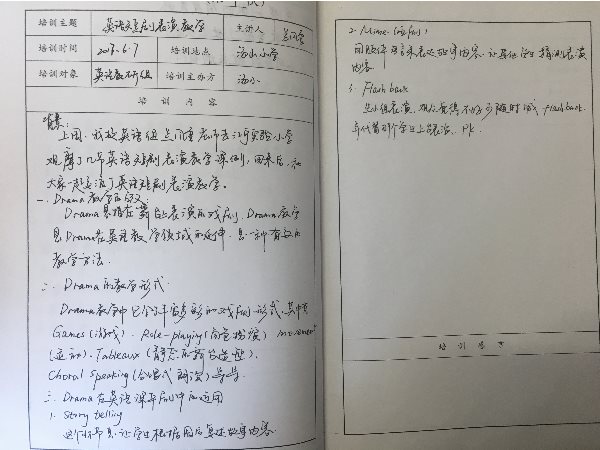 培训主题 英语戏剧表演教学 主讲人
培训时间 2017.6.7 培训地点 汤山小学
培训对象 英语教研组 培训主办方 汤小
培 训 内 容
背景:
上周,我校英语组老师去江宁实验小学
观摩了几节英语戏剧表演教学案例,回来后,和
大家一起交流了英语戏剧表演教学。
一、Drama教学的定义:
Drama是指在舞台上表演的戏剧,Drama教学
是Drama在英语教学领域的延伸,是一种有效的
教学方法.
二、Drama的教学形式.
Drama教学中包含了丰富多彩的戏剧形式,其中有
Games(游戏)、Role-playing(角色扮演) movement
(运动)、Tableaux(静态的造型)、
Choral speaking(合唱式朗诵)等等.
三、Drama在英语课开展中的运用
1. Story telling
这个环节是让学生根据图片复述故事内容.
2. Mime (哑剧)
用肢体语言来表达故事内容,让其他学生猜测表演
内容
3. Flash back
先小组表演,观众觉得不好可随时喊 flash back
并代替那个学生上台表演, PK.
培 训 感 言